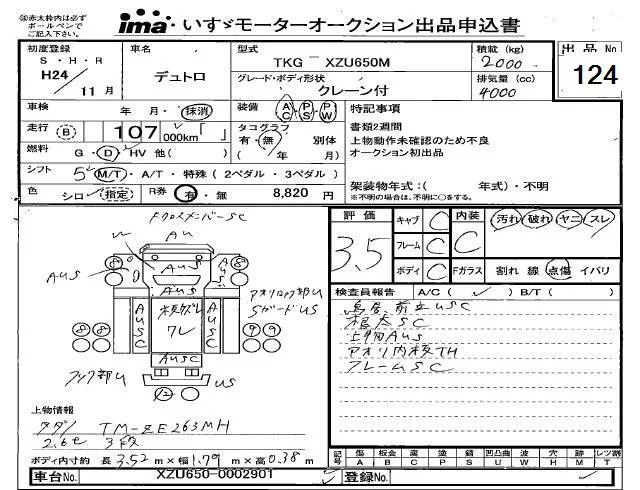 ㊟赤太枠内は必ず
ボールペンで
ご記入下さい。
ima いすゞモーターオークション出品申込書
初度登録 車名 型式 積載 (kg) 出品 No
S・H・R TKG - XZU650M 2000 124
H24 11月 デュトロ グレード・ボディ形状 排気量 (cc)
クレーン付 4000
車検 年 月・抹消 装備 AC・PS・PW 特記事項
走行 B 107 000km「 」 タコグラフ 書類2週間
有・無 別体 上物動作未確認のため不良
燃料 G・D・HV 他( ) ( 年 月) オークション初出品
シフト 5 M/T・A/T・特殊(2ペダル・3ペダル)
色 シロ(指定) R券 有・無 8,820 円 架装物年式:( 年式)・不明
※不明の場合は、不明に○をする。
評価 キャブ C 内装 汚れ 破れ ヤニ スレ
3.5 フレーム C C
ボディ C Fガラス 割れ 線 点傷 イバリ
検査員報告 A/C( ✓ ) B/T( )
鳥居、前立USC
根太SC
上物AUS
アオリ内板TH
フレームSC
FクロスメンバーSC
AU
AUS
AUS
AUS
アオリロック部U
SガードUS
AUSC
AUSC
ワレ
AUSC
フック部U
US
上物情報
タダノ TM-ZE263MH
2.6t 3段
ボディ内寸約 長 3.52 m×幅 1.79 m×高 0.38 m
記号 傷 A 板金 B 座 C 塗 P 錆 S 凹凸曲 U 波 W 穴 H 跡 M レツ割 T
車台No. XZU650-0002901 登録No.